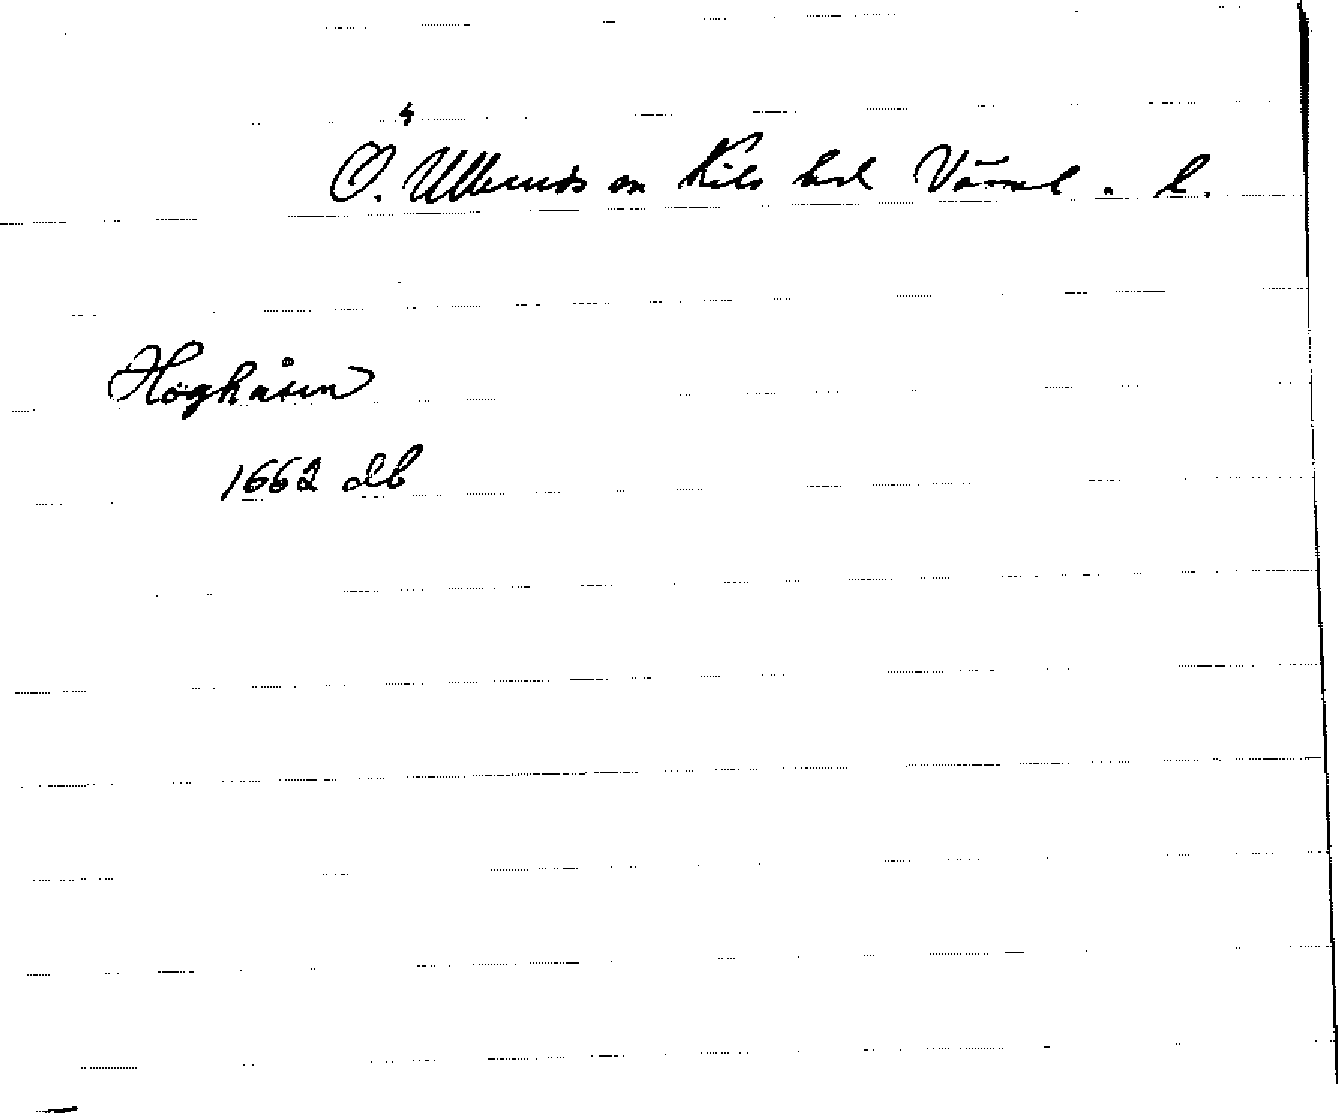 4
Ö. Ullerud sn Kils hd Värml. l.
Höghåsen
1662 db